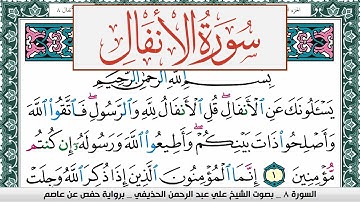 سُورَةُ الأَنفَالِ
بِسْمِ اللَّهِ الرَّحْمَٰنِ الرَّحِيمِ
يَسْـَٔلُونَكَ عَنِ ٱلْأَنفَالِ ۖ قُلِ ٱلْأَنفَالُ لِلَّهِ وَٱلرَّسُولِ ۖ فَٱتَّقُوا۟ ٱللَّهَ
وَأَصْلِحُوا۟ ذَاتَ بَيْنِكُمْ ۖ وَأَطِيعُوا۟ ٱللَّهَ وَرَسُولَهُۥٓ إِن كُنتُم
مُّؤْمِنِينَ ١ إِنَّمَا ٱلْمُؤْمِنُونَ ٱلَّذِينَ إِذَا ذُكِرَ ٱللَّهُ وَجِلَتْ
السورة ٨ _ بصوت الشيخ علي عبد الرحمن الحذيفي _ برواية حفص عن عاصم